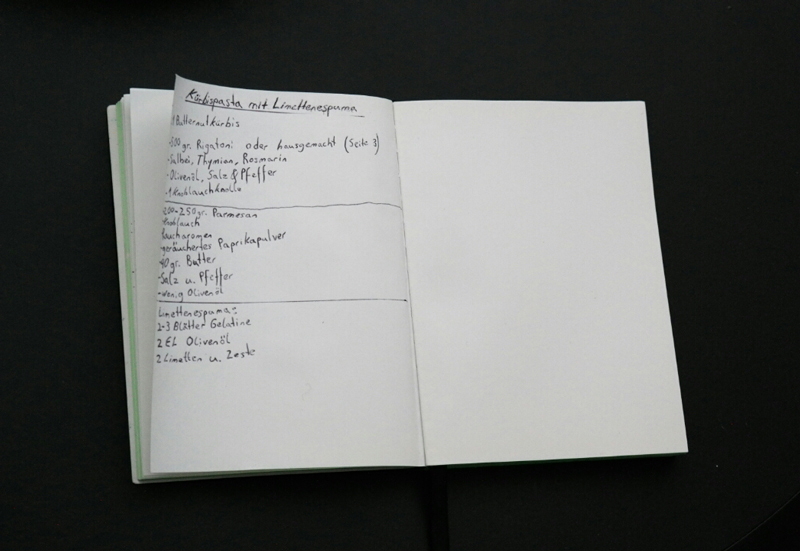 Kürbispasta mit Limettenespuma
1 Butternutkürbis
-500 gr. Rigatoni oder hausgemacht (Seite 3)
-Salbei, Thymian, Rosmarin
-Olivenöl, Salz & Pfeffer
-1 Knoblauchknolle
200-250 gr. Parmesan
Knoblauch
Raucharomen
geräuchertes Paprikapulver
40 gr. Butter
-Salz u. Pfeffer
-wenig Olivenöl
Limettenespuma:
2-3 Blätter Gelatine
2 EL Olivenöl
2 Limetten u. Zeste